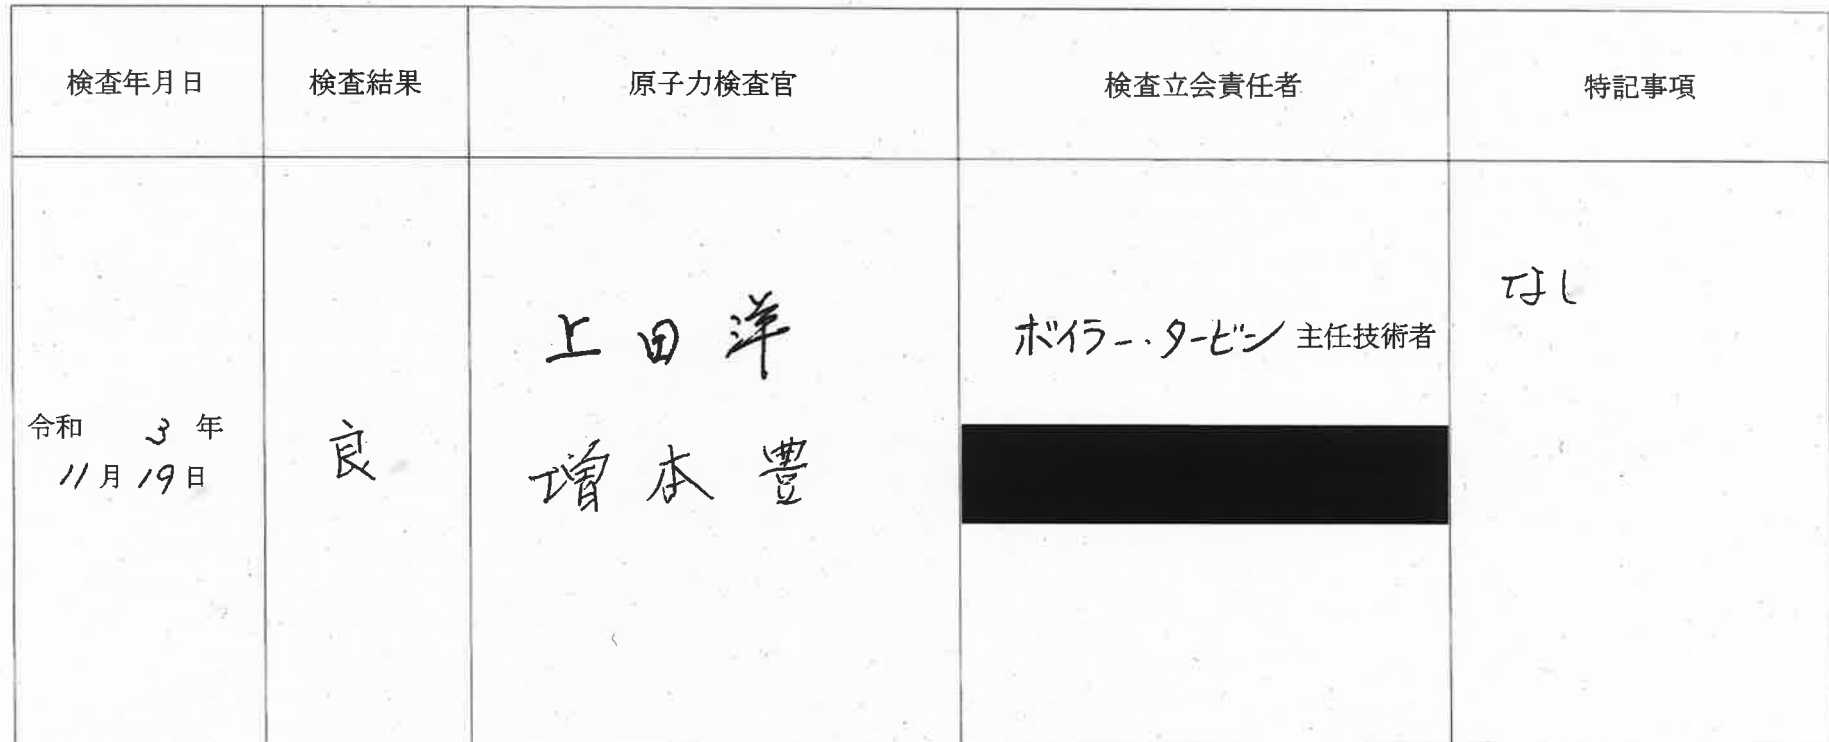 検査年月日 検査結果 原子力検査官 検査立会責任者 特記事項
令和 3 年
11月19日
良
上田洋
増本豊
ボイラー・タービン 主任技術者
なし